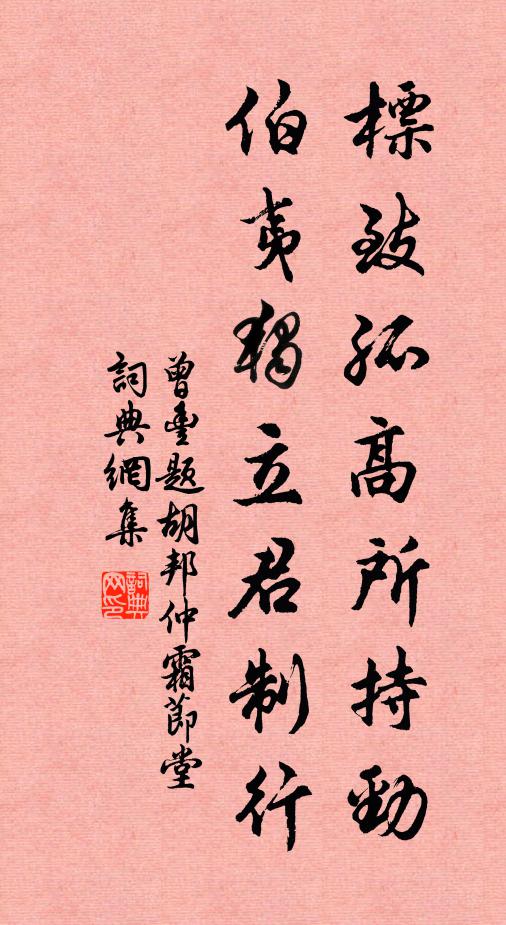 標致孤高所持勁
伯夷獨立君制行
曾豐題胡邦仲霜節堂
詞典網集
詞典网印